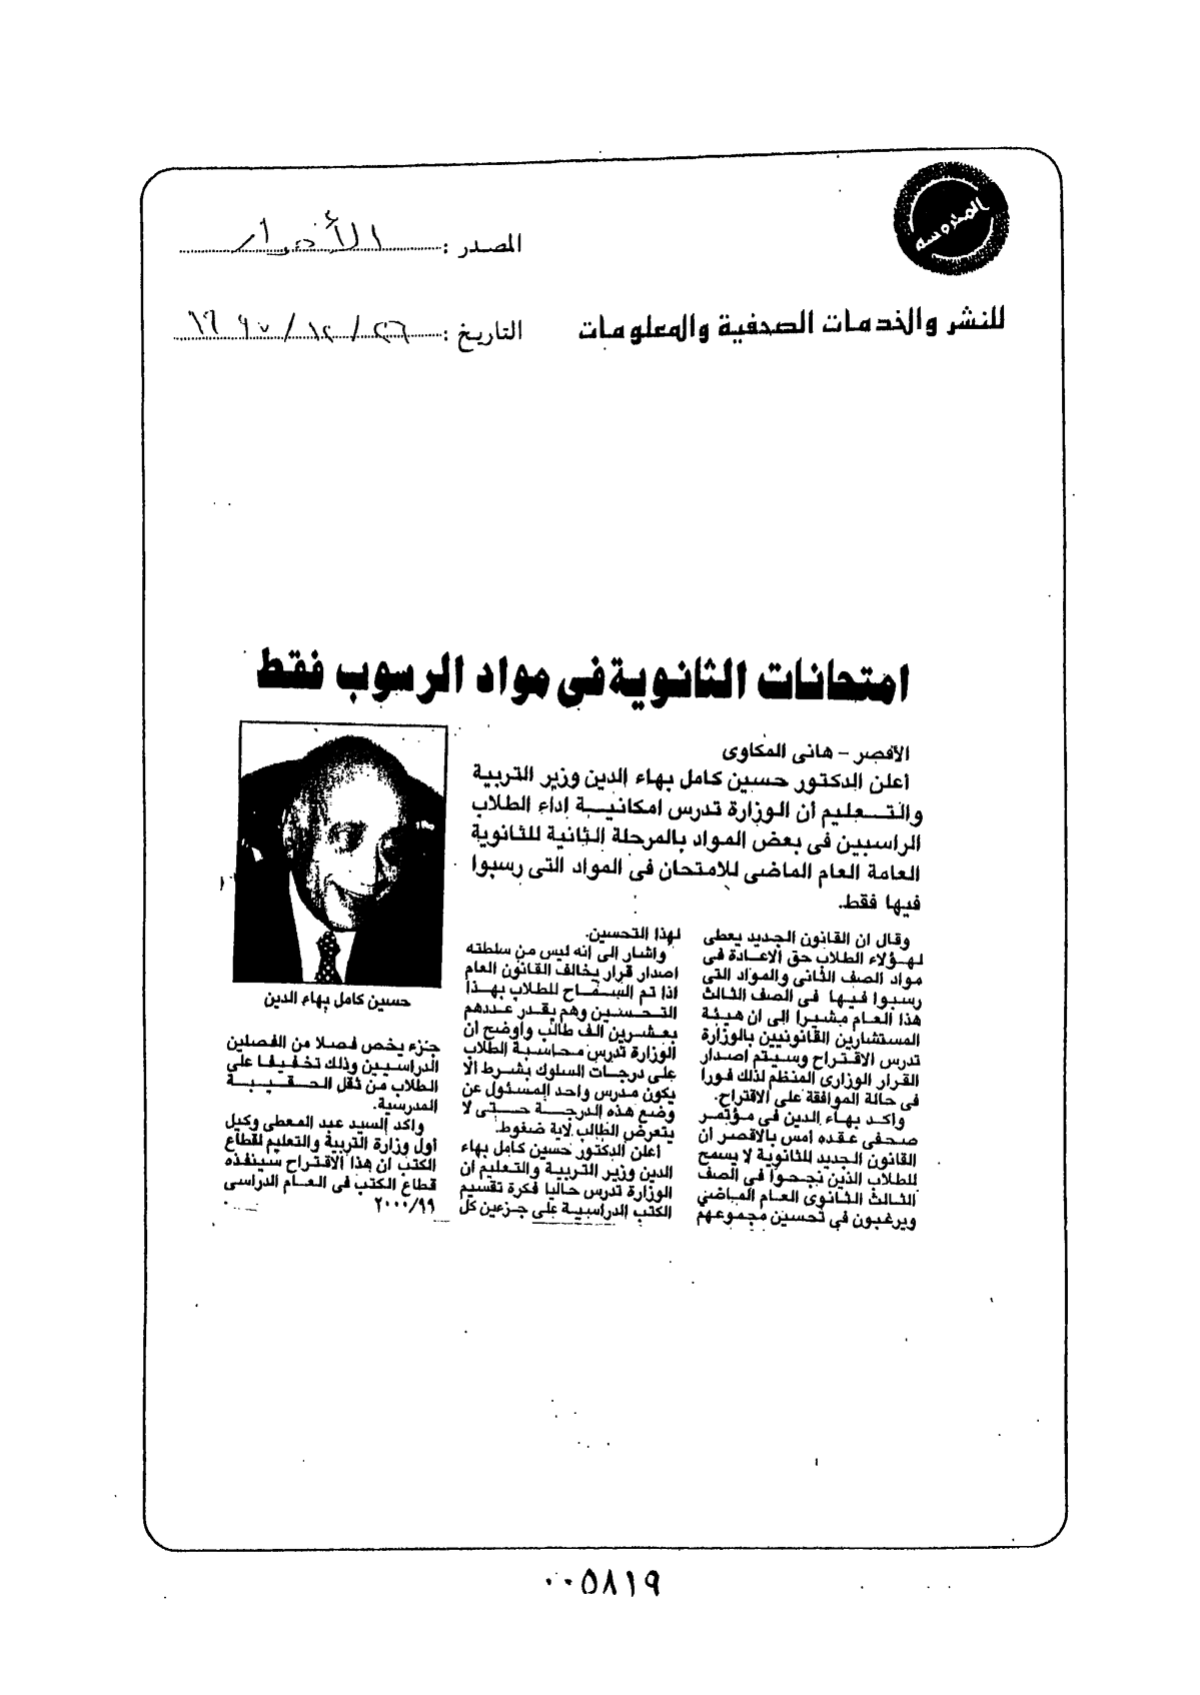 المحروسة
المصدر : الأخبار
للنشر والخدمات الصحفية والمعلومات
التاريخ : ٢٦ / ١٢ /
امتحانات الثانوية فى مواد الرسوب فقط
الأقصر - هانى المكاوى
أعلن الدكتور حسين كامل بهاء الدين وزير التربية
والتعليم أن الوزارة تدرس امكانية إداء الطلاب
الراسبين فى بعض المواد بالمرحلة الثانية للثانوية
العامة العام الماضى للامتحان فى المواد التى رسبوا
فيها فقط.
وقال ان القانون الجديد يعطى
لهؤلاء الطلاب حق الاعادة فى
مواد الصف الثانى والمواد التى
رسبوا فيها فى الصف الثالث
هذا العام مشيرا إلى ان هيئة
المستشارين القانونيين بالوزارة
تدرس الاقتراح وسيتم اصدار
القرار الوزارى المنظم لذلك فورا
فى حالة الموافقة على الاقتراح.
واكد بهاء الدين فى مؤتمر
صحفى عقده أمس بالاقصر ان
القانون الجديد للثانوية لا يسمح
للطلاب الذين نجحوا فى الصف
الثالث الثانوى العام الماضي
ويرغبون فى تحسين مجموعهم
لهذا التحسين.
واشار الى أنه ليس من سلطته
اصدار قرار يخالف القانون العام
اذا تم السماح للطلاب بهذا
التحسين وهم يقدر عددهم
بعشرين الف طالب وأوضح ان
الوزارة تدرس محاسبة الطلاب
على درجات السلوك بشرط ألا
يكون مدرس واحد المسئول عن
وضع هذه الدرجة حتى لا
يتعرض الطالب لاية ضغوط.
أعلن الدكتور حسين كامل بهاء
الدين وزير التربية والتعليم ان
الوزارة تدرس حاليا فكرة تقسيم
الكتب الدراسية على جزءين كل
حسين كامل بهاء الدين
جزء يخص فصلا من الفصلين
الدراسيين وذلك تخفيفا على
الطلاب من ثقل الحقيبة
المدرسية.
واكد السيد عبد المعطى وكيل
أول وزارة التربية والتعليم لقطاع
الكتب ان هذا الاقتراح سينفذه
قطاع الكتب فى العام الدراسى
٢٠٠٠/٩٩
٠٠٥٨١٩